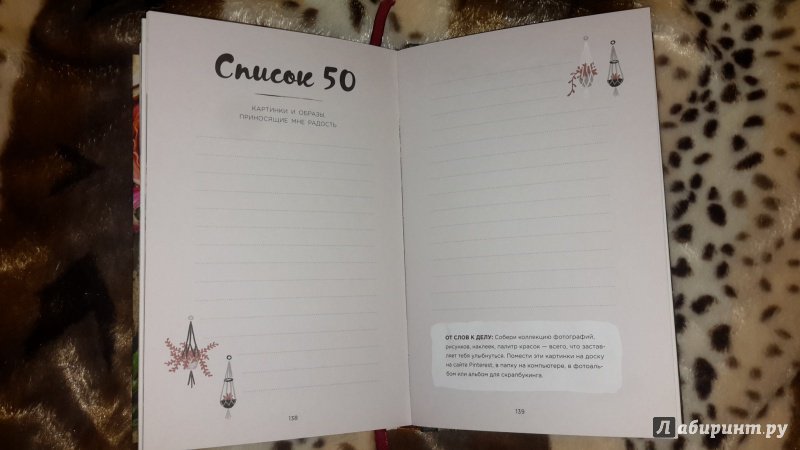 Список 50
КАРТИНКИ И ОБРАЗЫ,
ПРИНОСЯЩИЕ МНЕ РАДОСТЬ
138
ОТ СЛОВ К ДЕЛУ: Собери коллекцию фотографий,
рисунков, наклеек, палитр красок — всего, что застав-
ляет тебя улыбнуться. Помести эти картинки на доску
на сайте Pinterest, в папку на компьютере, в фотоаль-
бом или альбом для скрапбукинга.
139
Лабиринт.ру